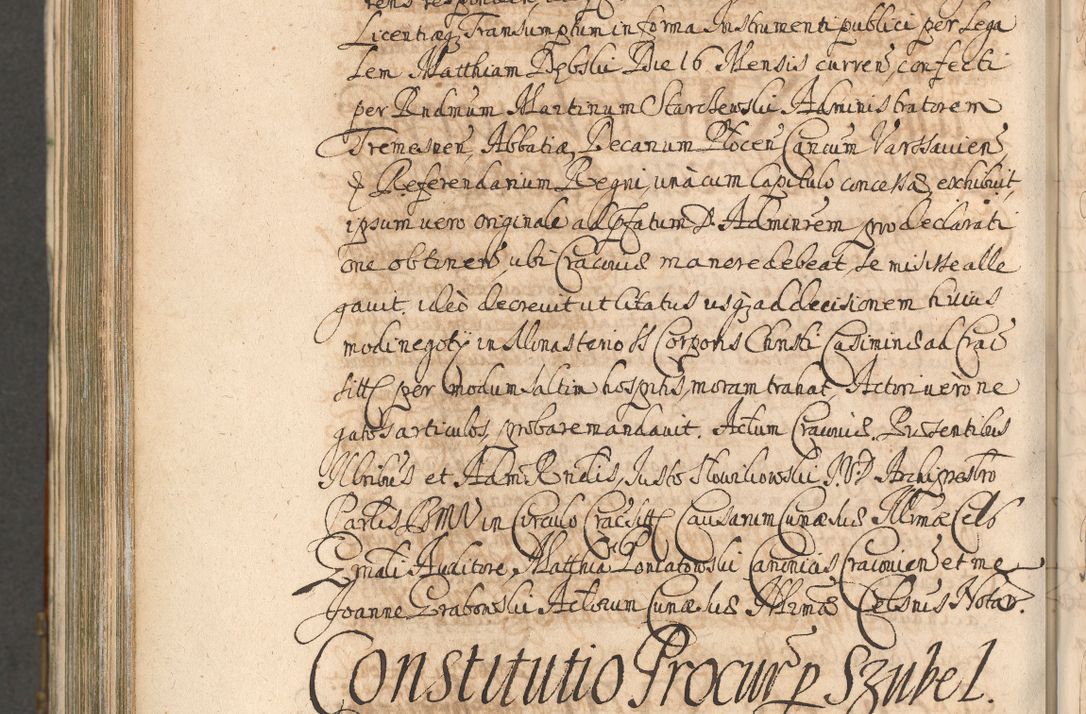 Licentiæq, Transumptum in forma Instrumenti publici per Lega
lem Matthiam Dębski Die 16 Mensis curren, confecti
per Rndmum Martinum Starczewski Administratorem
Tremesnen, Abbatiæ, Decanum Plocen Cancum Varssavien,
& Referendarium Regni, unà cum Capitulo concessæ exhibuit,
ipsum vero originale ad Pfatum D. Adminrem pro declarati
one obtinen, ubi Cracoviæ manere debeat, se misisse alle
gavit. ideò decrevit ut Citatus usq, ad decisionem huius
modi negotÿ in Monasterio SS Corporis Christi Casimiriæ ad Crac
sitt per modum saltim hospitis, moram trahat, Actori vero ne
gatos articulos, probare mandavit. Actum Cracoviæ. Præsentibus
Illribus et Adm Rndis, Justo Slowikowski J.V.D. Archipresbro
Parlis BMV in Circulo Crac sitt Causarum Curiæ suæ Illrmæ Cels
Ernali Auditore, Matthia Poniatowski Canonicis Cracovien et me
Joanne Grabowski Actorum Curiæ suæ Illrmæ Celsnis Notar.
Constitutio Procur p Szubel.